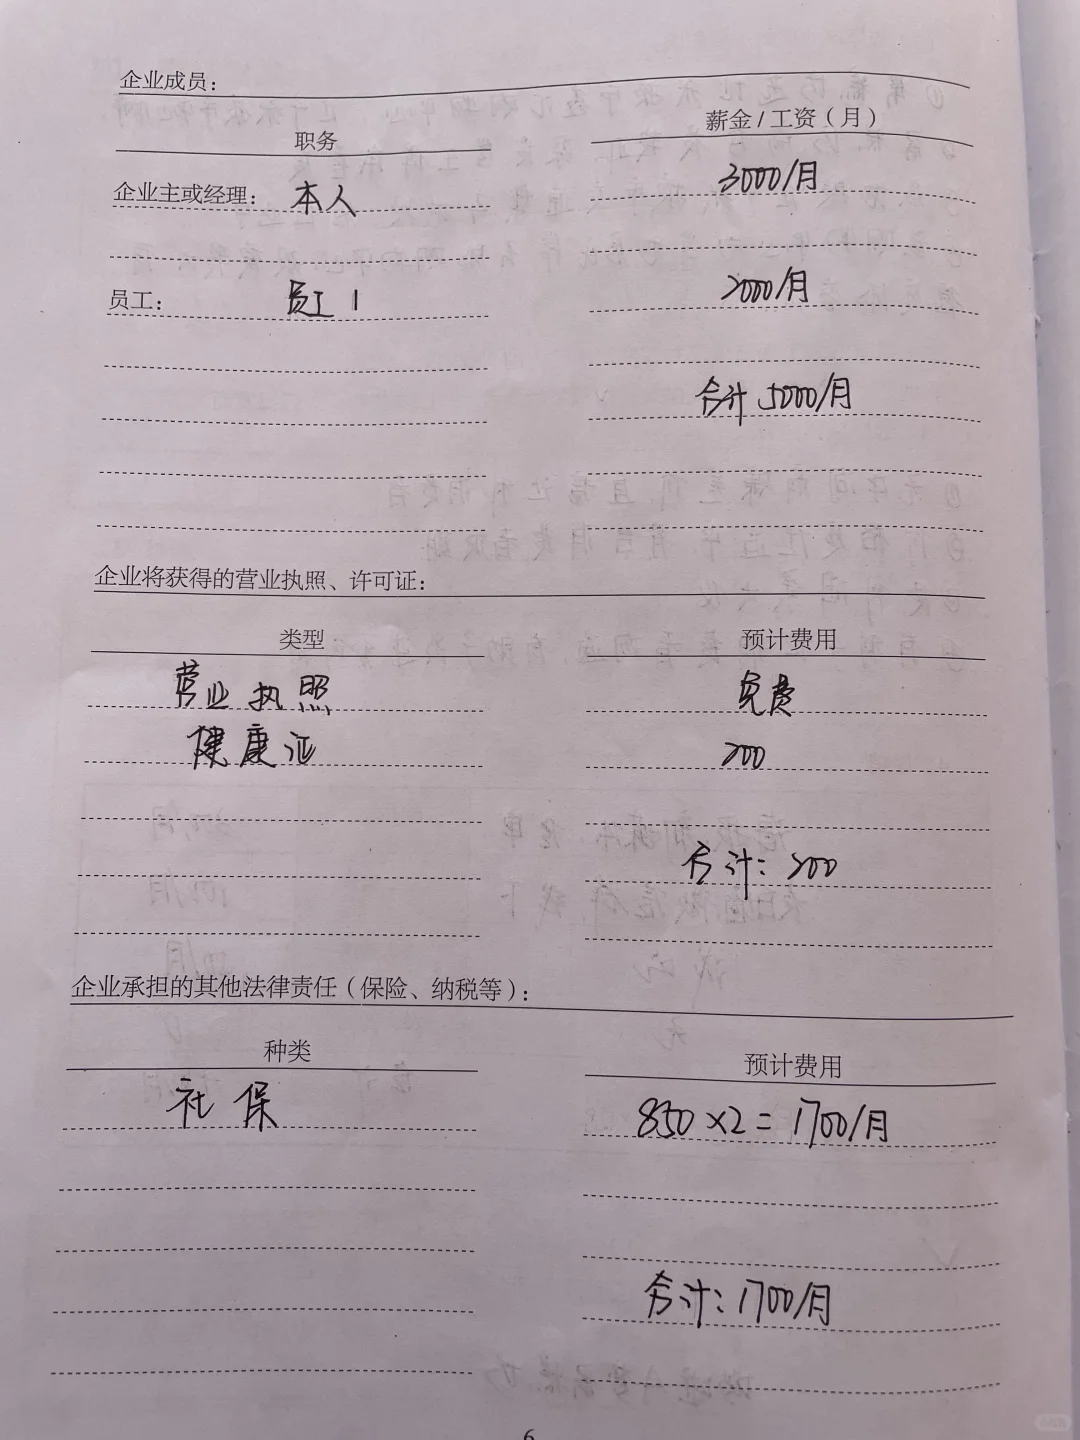 企业成员：
职务 薪金/工资（月）
企业主或经理： 本人 3000/月
员工： 员工1 2000/月
合计 5000/月
企业将获得的营业执照、许可证：
类型 预计费用
营业执照 免费
健康证 200
合计：200
企业承担的其他法律责任（保险、纳税等）：
种类 预计费用
社保 850×2=1700/月
合计：1700/月
6